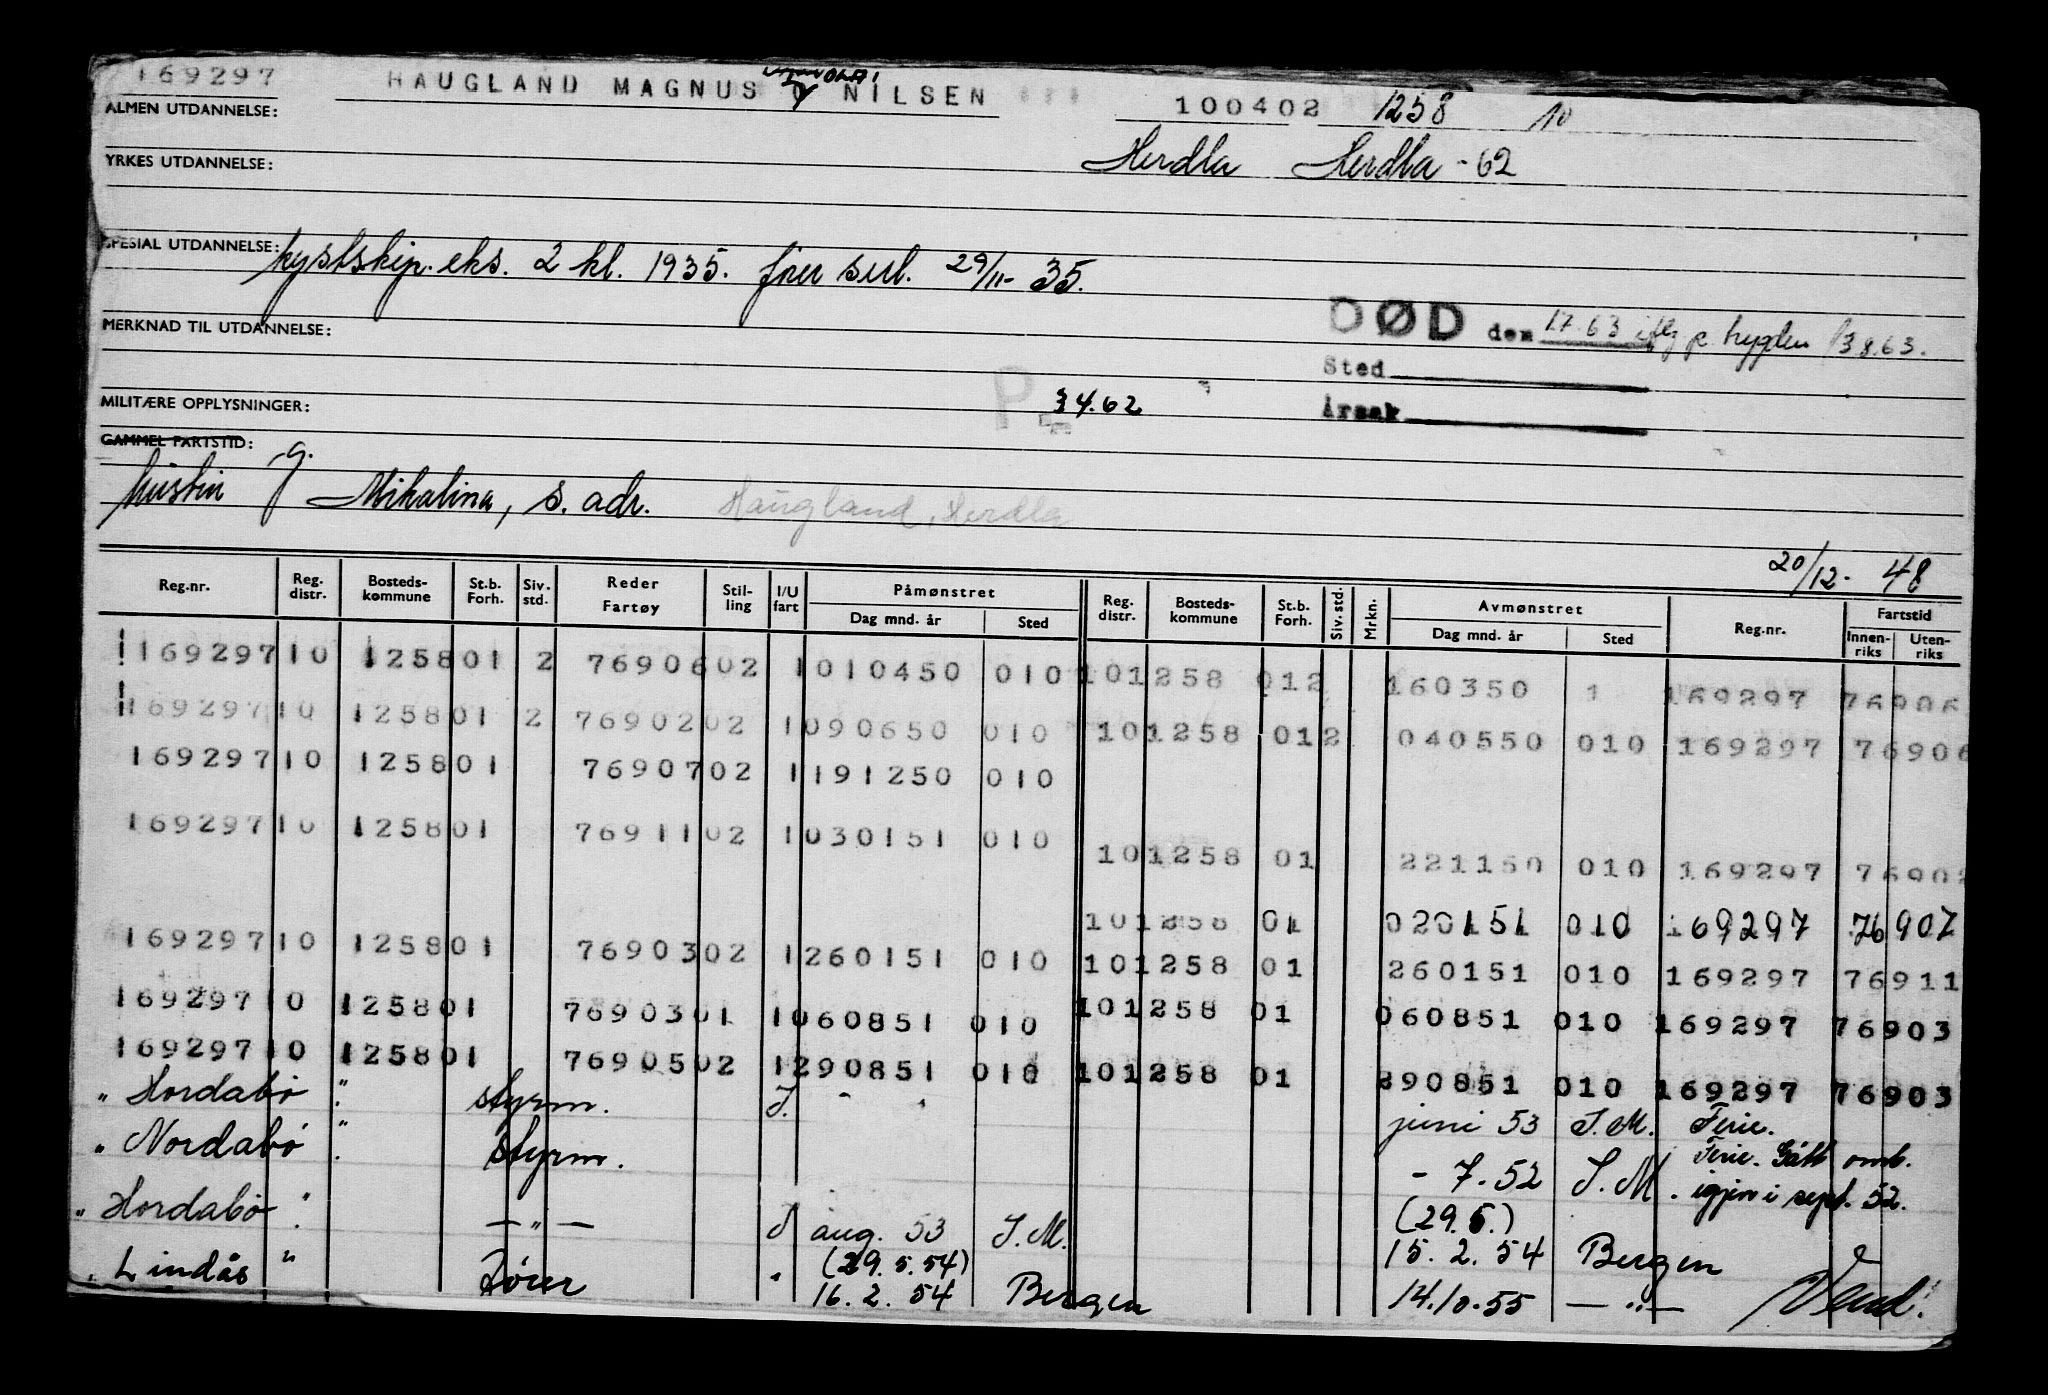 169297 HAUGLAND MAGNUS O NILSEN 100402 1258 10
OLAI
ALMEN UTDANNELSE:
YRKES UTDANNELSE: Herdla Herdla - 62
SPESIAL UTDANNELSE: kystskip. eks. 2 kl. 1935. fører sert. 29/11- 35.
MERKNAD TIL UTDANNELSE: DØD den 1.7.63 iflg p. trygden 13 8.63.
Sted
Årsak
MILITÆRE OPPLYSNINGER: P 3 4.62
GAMMEL FARTSTID:
hustru g. Mikalina, s. adr. Haugland, Herdla
20/12- 48
Reg.nr. Reg. distr. Bosteds-kommune St.b. Forh. Siv. std. Reder Fartøy Stil-ling I/U fart Påmønstret Dag mnd. år Sted Reg. distr. Bosteds-kommune St.b. Forh. Siv. std. Mrkn. Avmønstret Dag mnd. år Sted Reg.nr. Fartstid Innen-riks Uten-riks
169297 10 1258 01 2 76906 02 1 010450 010 10 1258 01 2 160350 1 169297 76906
169297 10 1258 01 2 76902 02 1 090650 010 10 1258 01 2 040550 010 169297 76906
169297 10 1258 01 76907 02 1 191250 010
169297 10 1258 01 76911 02 1 030151 010
10 1258 01 221150 010 169297 76902
10 1258 01 020151 010 169297 76907
169297 10 1258 01 76903 02 1 260151 010 10 1258 01 260151 010 169297 76911
169297 10 1258 01 76903 01 1 060851 010 10 1258 01 060851 010 169297 76903
169297 10 1258 01 76905 02 1 290851 010 10 1258 01 290851 010 169297 76903
" Hordabø " styrm. I. juni 53 S.M. Ferie.
" Nordabø " styrm. - 7-52 S.M. Ferie. Gått omb. igjen i sept. 52.
" Hordabø " — " — I aug. 53 S.M. (29.5.) 15. 2. 54 Bergen
" Lindås " Fører " (29.5.54) 16. 2. 54 Bergen 14.10.55 — " —